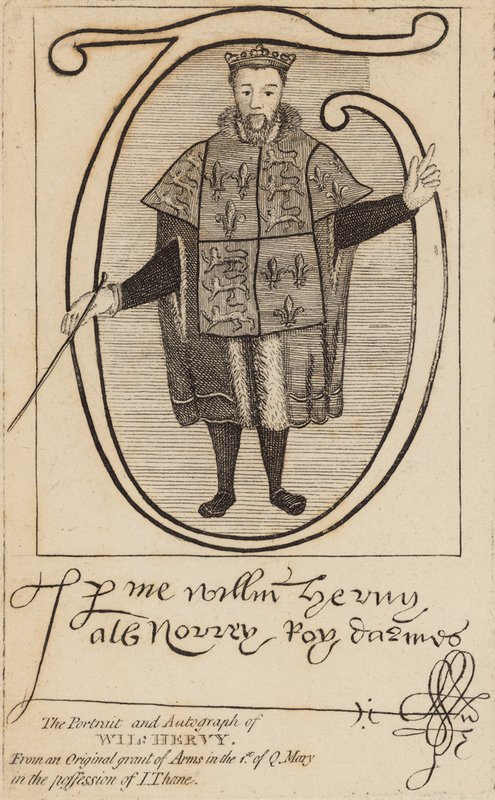 p me willm̃ hervy
als Norrey Roy darmes
The Portrait and Autograph of
WILL: HERVY.
From an Original grant of Arms in the 1st. of Q. Mary
in the possession of I. Thane.